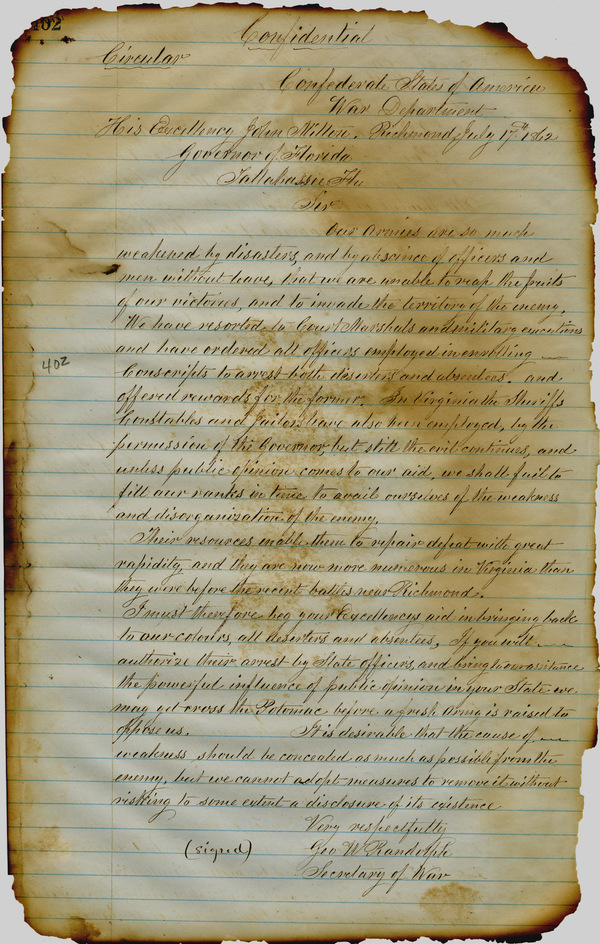 402
Confidential
Circular
Confederate States of America
War Department
His Excellency John Milton. Richmond, July 17th 1862
Governor of Florida
Tallahassee Fla
Sir
Our Armies are so much
weakened by disasters, and by abscince of officers and
men without leave, that we are unable to reap the fruits
of our victories, and to invade the territory of the enemy.
We have resorted to Court Marshals and military executions
and have ordered all officers employed in enrolling
Conscripts to arrest both deserters and absentees. and
offered rewards for the former. In Virginia the Sheriffs
Constables and Jailors have also been employed, by the
permission of the Governor, but still the evil continues, and
unless public opinion comes to our aid, we shall fail to
fill our ranks in time to avail ourselves of the weakness
and disorganization of the enemy.
Their resources enable them to repair defeat with great
rapidity, and they are now more numerous in Virginia than
they were before the recent battles near Richmond.
I must therefore beg your Excellencys aid in bringing back
to our colours, all deserters and absentees. If you will
authorize their arrest by State officers, and bring to our assistance
the powerful influence of public opinion in your State we
may yet cross the Potomac before a fresh Army is raised to
oppose us. It is desirable that the cause of
weakness should be concealed as much as possible from the
enemy, but we cannot adopt measures to remove it without
risking to some extent a disclosure of its existence
Very respectfully
(signed) Geo W Randolph
Secretary of War
402